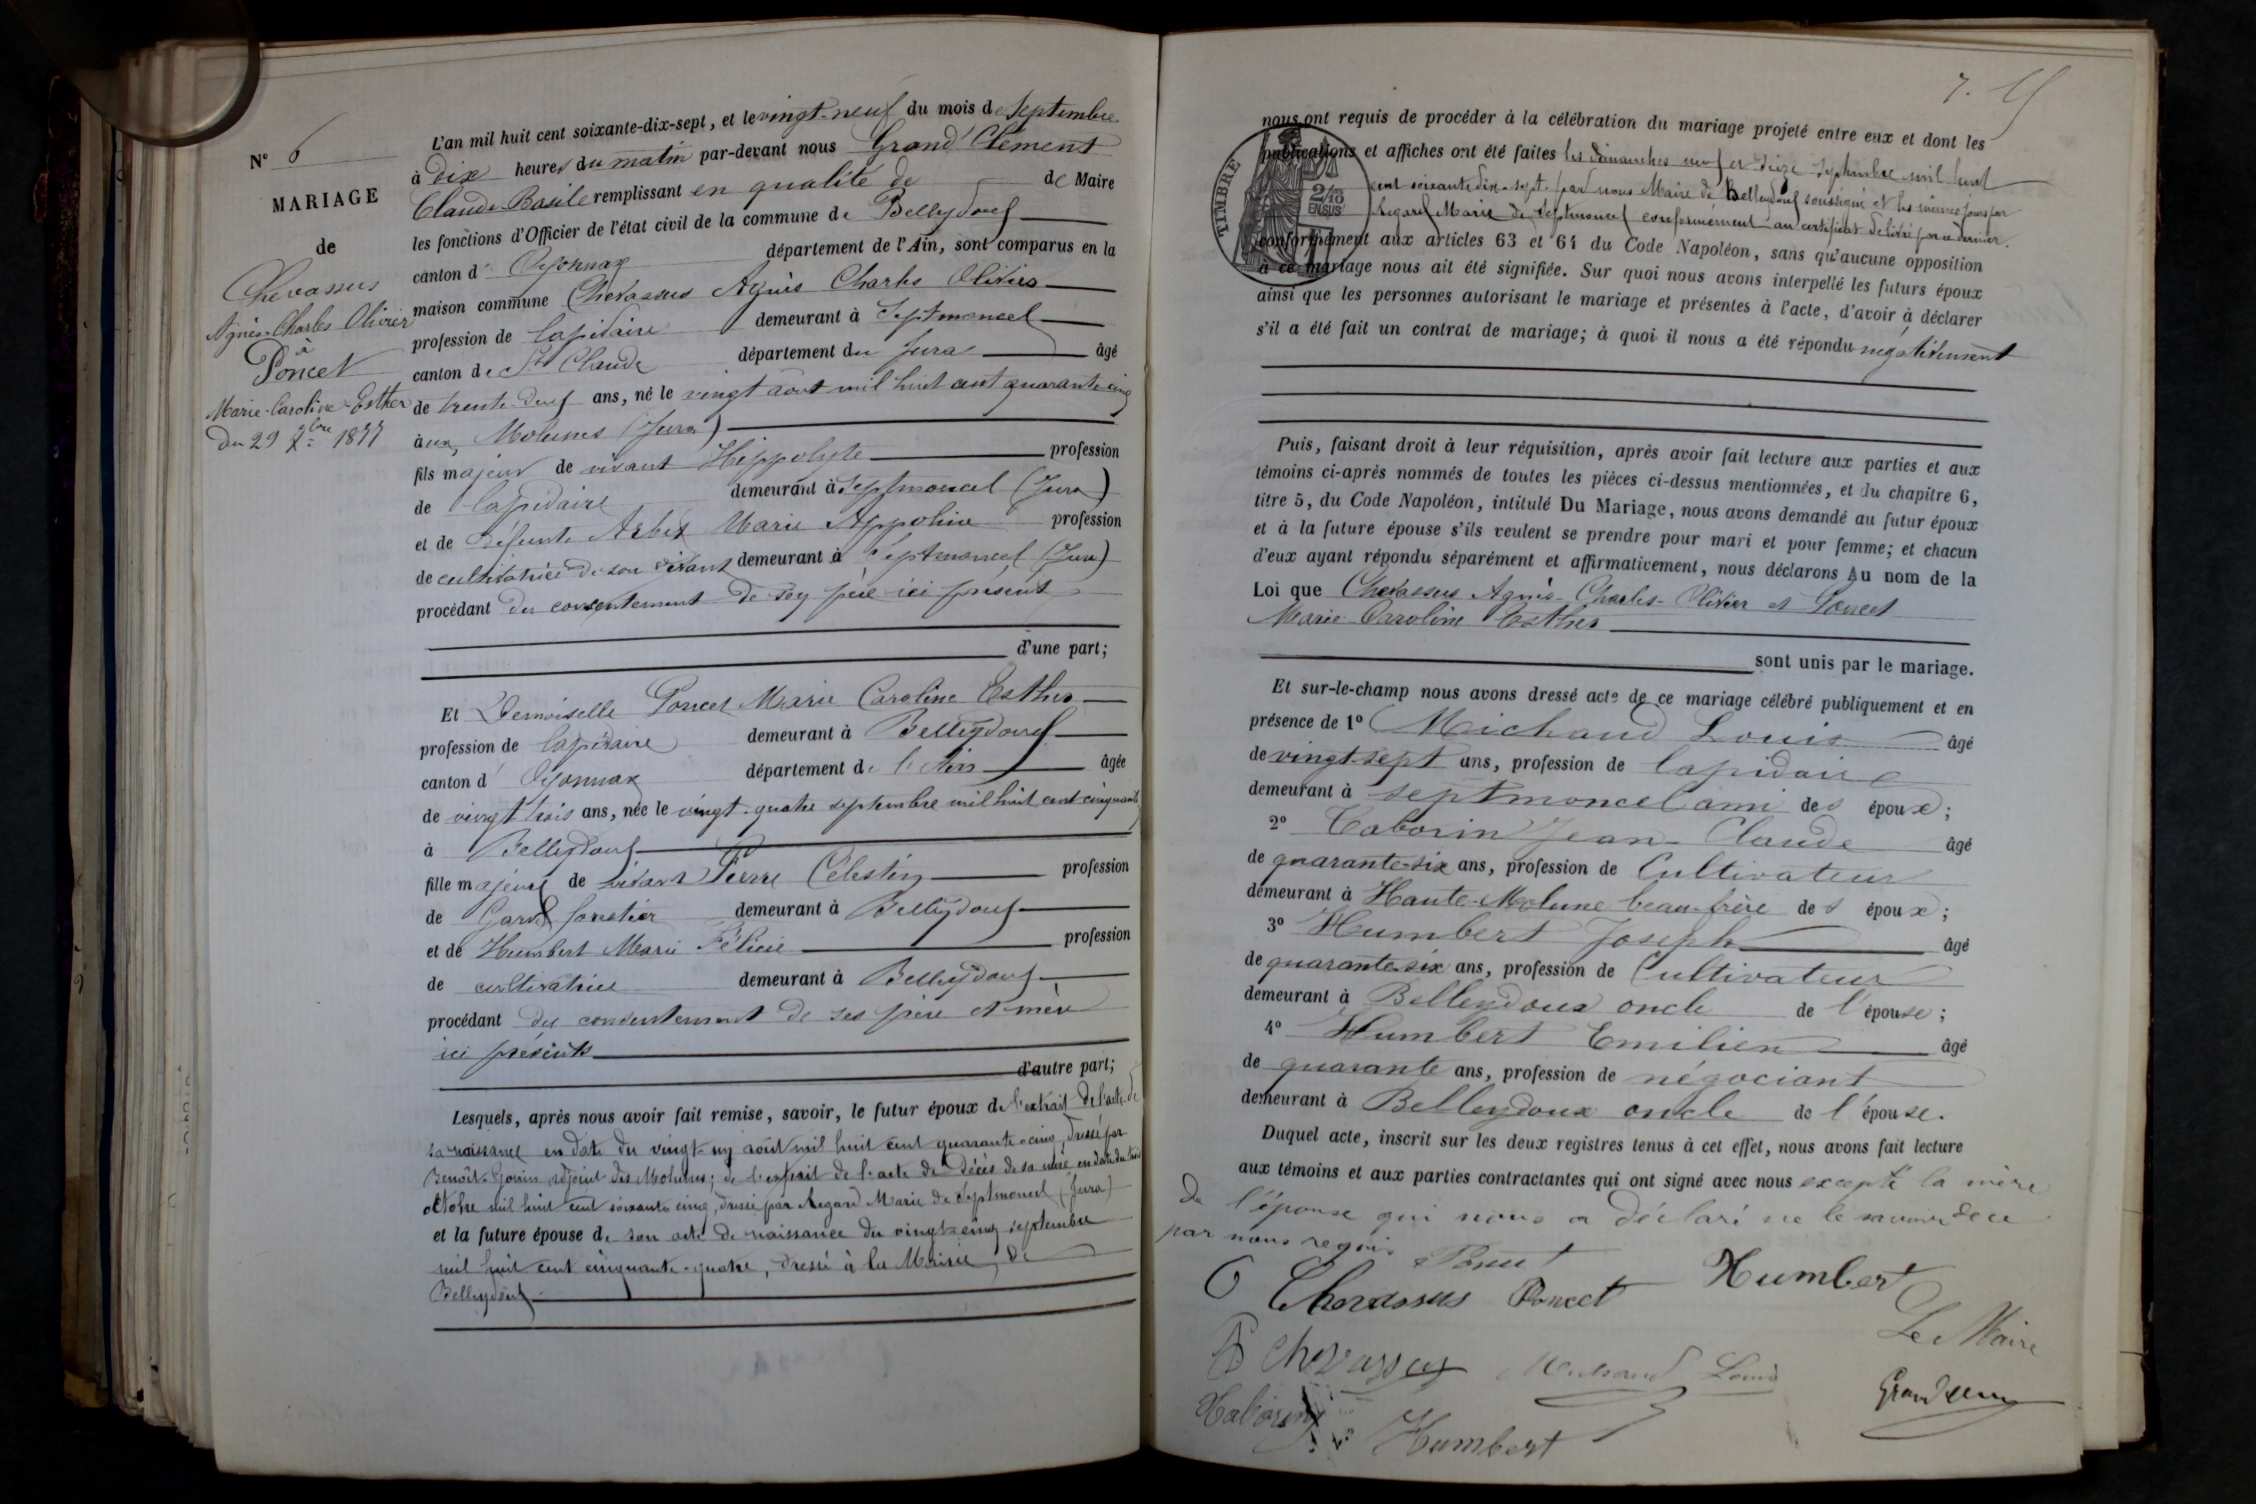 N° 6
MARIAGE
de
Chevassus
Agnès-Charles Olivier
à
Poncet
Marie-Caroline-Esther
du 29 7bre 1877
L'an mil huit cent soixante-dix-sept, et le vingt-neuf du mois de septembre
à dix heures du matin par-devant nous Grand' Clément
Claude-Basile remplissant en qualité de de Maire
les fonctions d'Officier de l'état civil de la commune de Belleydoux
canton d' Oyonnax département de l'Ain, sont comparus en la
maison commune Chevassus Agnès Charles Olivier
profession de lapidaire demeurant à Septmoncel
canton de St Claude département du Jura âgé
de trente-deux ans, né le vingt août mil huit cent quarante-cinq
à aux Molunes (Jura)
fils majeur de vivant Hippolyte profession
de lapidaire demeurant à Septmoncel (Jura)
et de défunte Arbez Marie Appoline profession
de cultivatrice de son vivant demeurant à Septmoncel (Jura)
procédant du consentement de son père ici présent
d'une part;
Et Demoiselle Poncet Marie Caroline Esther
profession de lapidaire demeurant à Belleydoux
canton d' Oyonnax département de l'Ain âgée
de vingt trois ans, née le vingt-quatre septembre mil huit cent cinquante
à Belleydoux
fille majeure de vivant Pierre Célestin profession
de Garde forestier demeurant à Belleydoux
et de Humbert Marie Félicie profession
de cultivatrice demeurant à Belleydoux
procédant du consentement de ses père et mère
ici présents
d'autre part;
Lesquels, après nous avoir fait remise, savoir, le futur époux de l'extrait de l'acte de
sa naissance en date du vingt-un août mil huit cent quarante-cinq, dressé par
Benoît-Gonin adjoint des Molunes; de l'extrait de l'acte de décès de sa mère en date du trois
octobre mil huit cent soixante cinq, dressé par Regard Maire de Septmoncel (Jura)
et la future épouse de son acte de naissance du vingt-cinq septembre
mil huit cent cinquante-quatre, dressé à la Mairie de
Belleydoux
7. 15
nous ont requis de procéder à la célébration du mariage projeté entre eux et dont les
publications et affiches ont été faites les dimanches neuf et seize septembre mil huit
cent soixante dix-sept par nous Maire de Belleydoux soussigné et les mêmes jours par
Regard Maire de Septmoncel conformément au certificat délivré par ce dernier.
TIMBRE
2/10
EN SUS
conformément aux articles 63 et 64 du Code Napoléon, sans qu'aucune opposition
à ce mariage nous ait été signifiée. Sur quoi nous avons interpellé les futurs époux
ainsi que les personnes autorisant le mariage et présentes à l'acte, d'avoir à déclarer
s'il a été fait un contrat de mariage; à quoi il nous a été répondu négativement
Puis, faisant droit à leur réquisition, après avoir fait lecture aux parties et aux
témoins ci-après nommés de toutes les pièces ci-dessus mentionnées, et du chapitre 6,
titre 5, du Code Napoléon, intitulé Du Mariage, nous avons demandé au futur époux
et à la future épouse s'ils veulent se prendre pour mari et pour femme; et chacun
d'eux ayant répondu séparément et affirmativement, nous déclarons Au nom de la
Loi que Chevassus Agnès-Charles-Olivier et Poncet
Marie-Caroline Esther
sont unis par le mariage.
Et sur-le-champ nous avons dressé acte de ce mariage célébré publiquement et en
présence de 1° Michaud Louis âgé
de vingt-sept ans, profession de lapidaire
demeurant à septmoncel ami des époux;
2° Taborin Jean-Claude âgé
de quarante-six ans, profession de Cultivateur
demeurant à Haute-Molune beau-frère des époux;
3° Humbert Joseph âgé
de quarante-six ans, profession de Cultivateur
demeurant à Belleydoux oncle de l'épouse;
4° Humbert Emilien âgé
de quarante ans, profession de négociant
demeurant à Belleydoux oncle de l'épouse.
Duquel acte, inscrit sur les deux registres tenus à cet effet, nous avons fait lecture
aux témoins et aux parties contractantes qui ont signé avec nous excepté la mère
de l'épouse qui nous a déclaré ne le savoir de ce
par nous requis
Poncet
C Chevassus Poncet Humbert
Le Maire
Chevassus Michaud Louis
Grandclément
Taborin Humbert